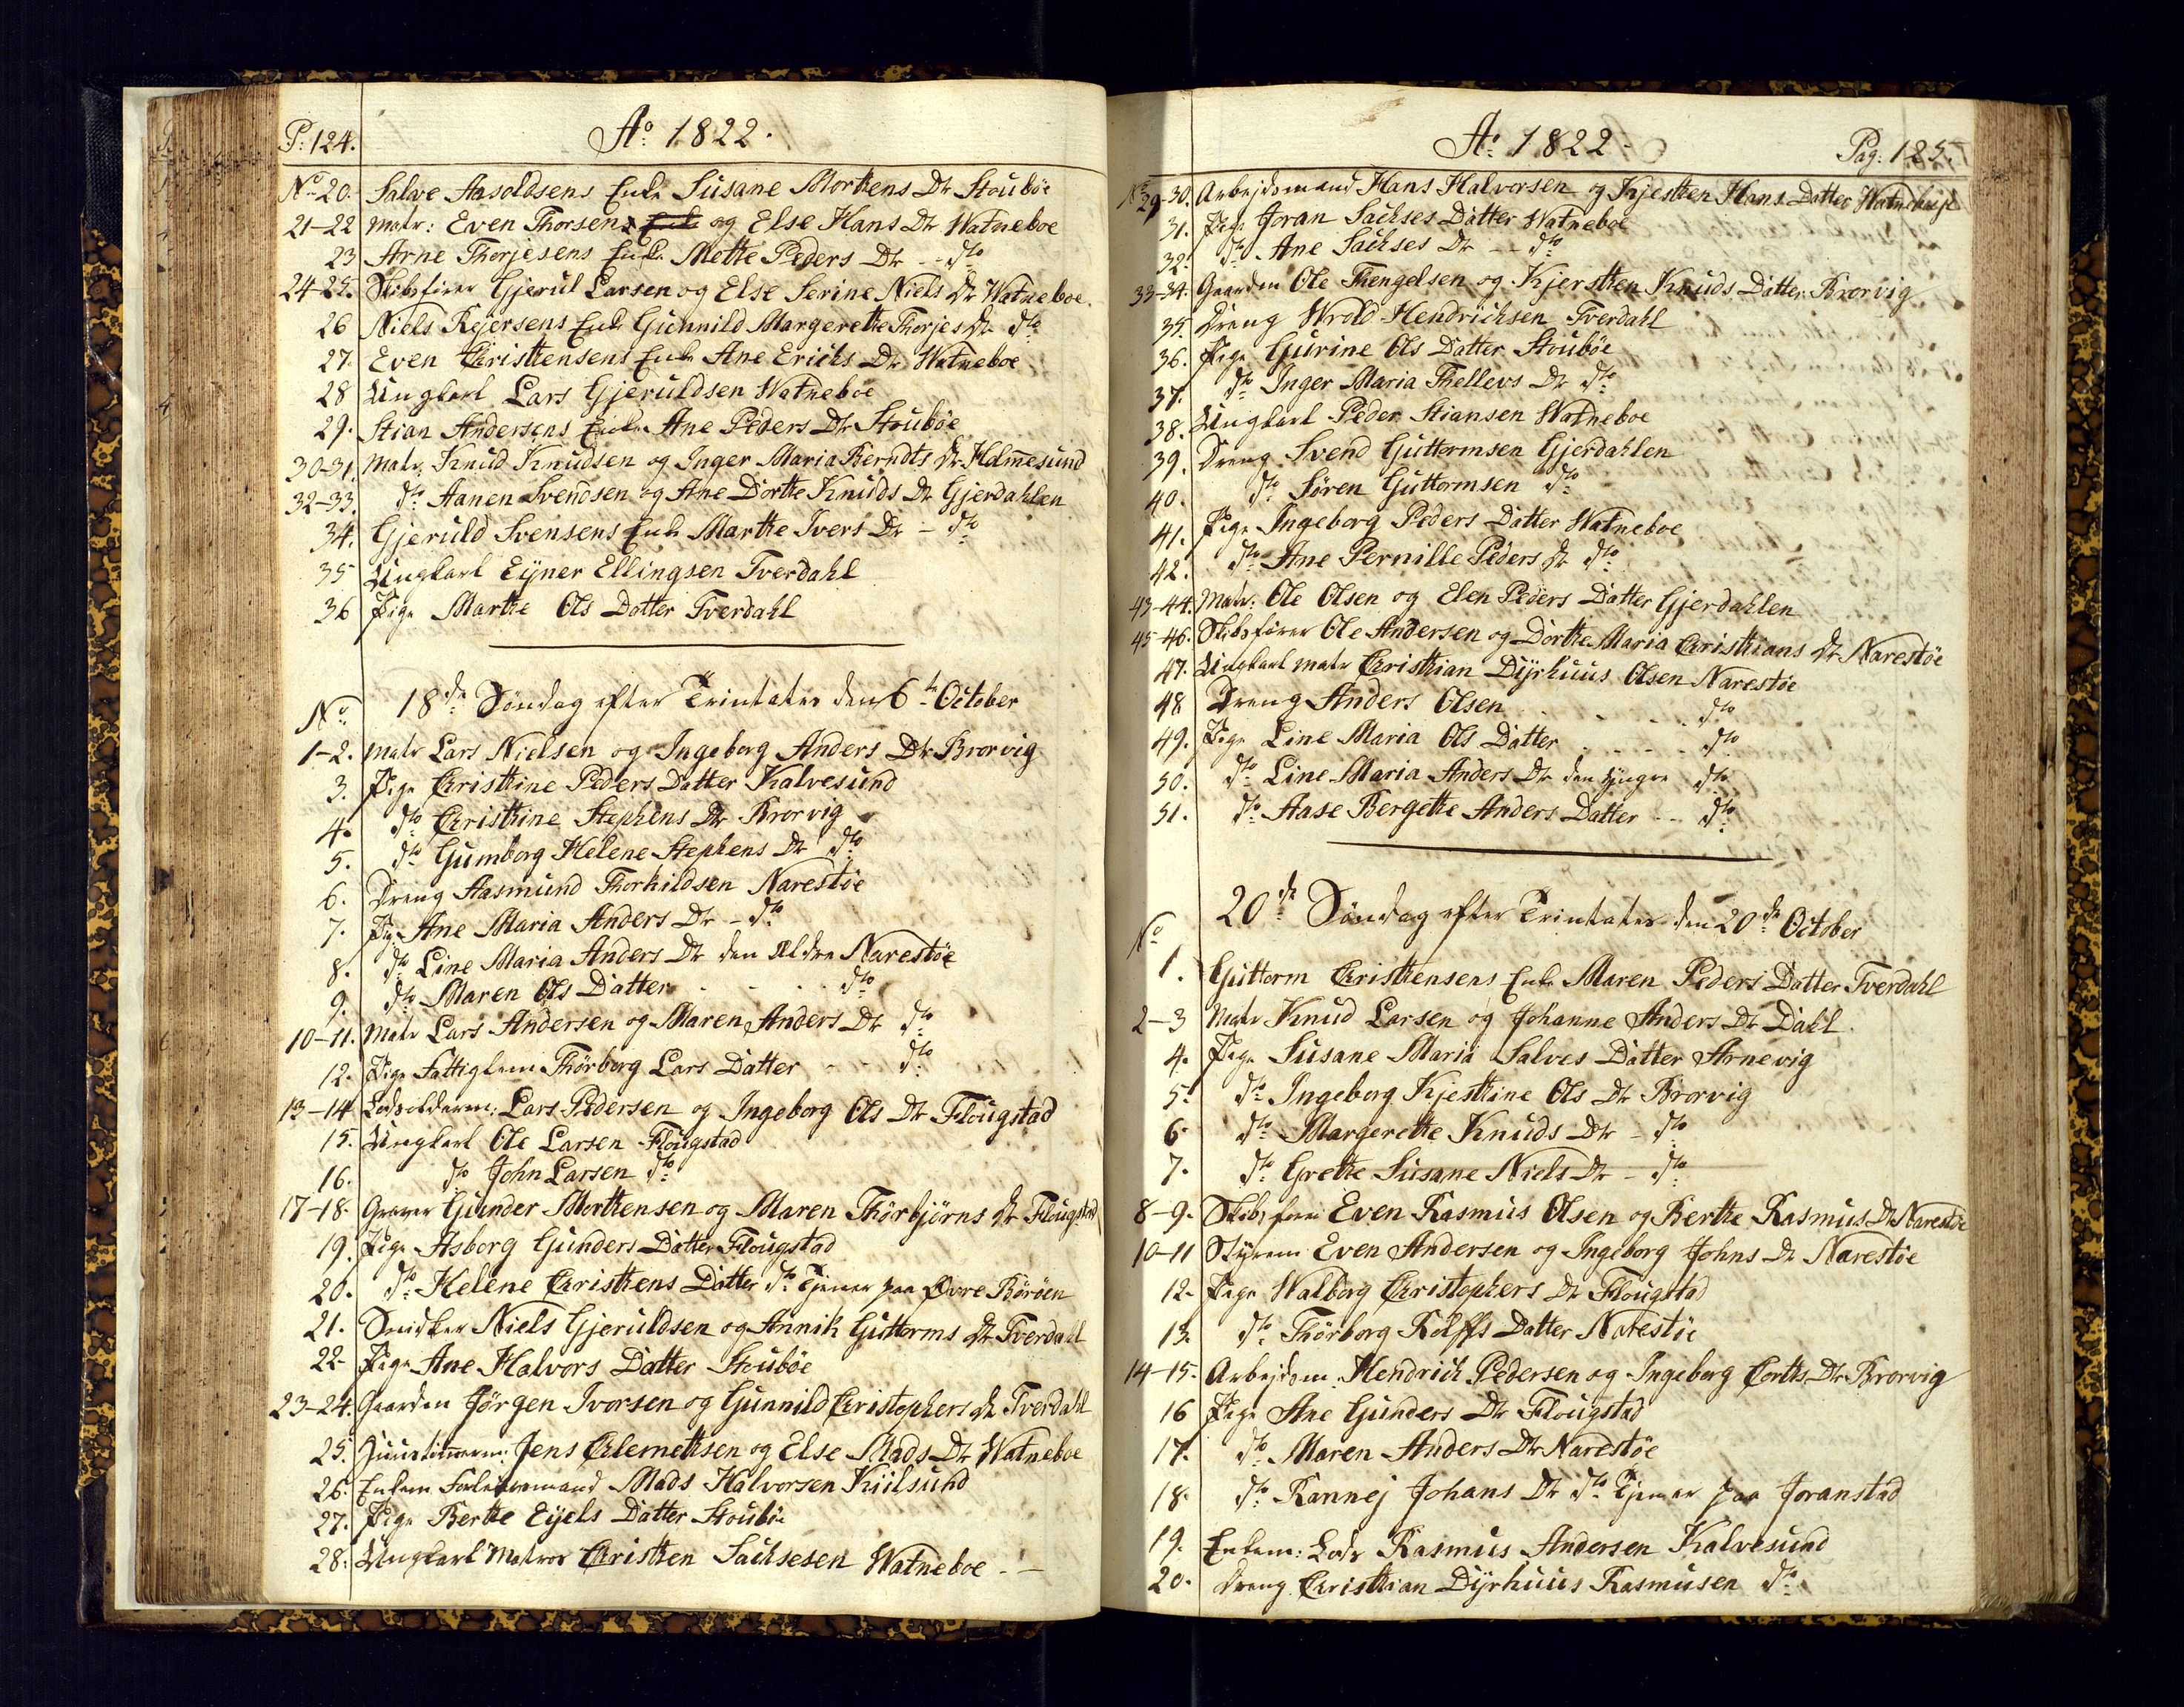 P: 124.
Ao 1822.
No 20. Salve Aasoldsens Enke Susane Mortens Dr Stouböe
21-22 Matr: Even Thorsen og Else Hans Dr Watneboe
23 Arne Thorjesens Enke Mette Peders Dr - dto
24-25. Skibsfører Gjerul Larsen og Else Serine Niels Dr Watneboe.
26 Niels Rejersens Enke Gunnild Margerette Thorjes Dr dto
27. Even Christensens Enke Ane Erichs Dr Watneboe
28 Ungkarl Lars Gjeruldsen Watneboe
29. Stian Andersens Enke Ane Peders Dr Stouböe
30-31. Matr Knud Knudsen og Inger Maria Berndts Dr Holmesund
32-33. dto Aanen Svendsen og Ane Dorte Knuds Dr Gjerdahlen
34. Gjeruld Svensens Enke Marthe Ivers Dr - dto
35 Ungkarl Eyner Ellingsen Tverdahl
36 Pige Marthe Ols Datter Tverdahl
No 18de Söndag efter Trinitates den 6te October
1-2. Matr Lars Nielsen og Ingeborg Anders Dr Brorvig
3. Pige Christine Peders Datter Kalvesund
4. dto Christine Stephens Dr Brorvig
5. dto Gumborg Helene Stephens Dr dto
6. Dreng Aasmund Thorkildsen Narestöe
7. Pig. Ane Maria Anders Dr - dto
8. dto Line Maria Anders Dr den Ældre Narestöe
9. dto Maren Ols Datter dto
10-11. Matr Lars Andersen og Maren Anders Dr dto
12. Pige Fattiglem Thörborg Lars Datter - - dto
13-14 Lodsolderm: Lars Pedersen og Ingeborg Ols Dr Flougstad
15. Ungkarl Ole Larsen Flougstad
16. dto John Larsen dto
17-18. Graver Gunder Mortensen og Maren Thörbjörns Dr Flougstad
19. Pige Asborg Gunders Datter Flougstad
20. dto Helene Christens Datter dto Tjener paa Øvre Böröen
21. Snidker Niels Gjeruldsen og Annik Guttorms Dr Tverdahl
22. Pige Ane Halvors Datter Stouböe
23-24. Gaardm Jörgen Ivorsen og Gunnild Christophers Dr Tverdahl
25. Jens Clemetsen og Else Mads Dr Watneboe
26. Enkem Mads Halvorsen Kiilsund
27. Pige Berte Eyels Datter Stouböe
28. Ungkarl Matros Christen Sachsesen Watneboe - -
Ao 1822.
Pag: 125.
No 29-30. Arbejdsmand Hans Halvorsen og Kjesten Hans Datter
31. Pige Joran Sachses Datter Watneboe
32. dto Ane Sachses Dr - dto
33-34. Gaardm Ole Thengelsen og Kjersten Knuds Datter Brorvig
35. Dreng Wrold Hendrichsen Tverdahl
36. Pige Gurine Ols Datter Stouböe
37. dto Inger Maria Thellevs Dr dto
38. Ungkarl Peder Stiansen Watneboe
39. Dreng Svend Guttormsen Gjerdahlen
40. dto Sören Guttormsen dto
41. Pige Ingeborg Peders Datter Watneboe
42. dto Ane Pernille Peders Dr dto
43-44. Matr: Ole Olsen og Elen Peders Datter Gjerdahlen
45-46. Skibsfører Ole Andersen og Dorthe Maria Christians Dr Narestöe
47. Ungkarl Matr Christian Dyrhuus Olsen Narestöe
48 Dreng Anders Olsen dto
49. Pige Line Maria Ols Datter dto
50. dto Line Maria Anders Dr den yngre dto
51. dto Aase Bergette Anders Datter - - dto
No 20de Söndag efter Trinitates den 20de October
1. Guttorm Christensens Enke Maren Peders Datter Tverdahl
2-3 Matr Knud Larsen og Johanne Anders Dr Dahl
4. Pige Susane Maria Salves Datter Arnevig
5. dto Ingeborg Kjestine Ols Dr Brorvig
6. dto Margerette Knuds Dr - dto
7. dto Grethe Susane Niels Dr - dto
8-9. Skibsfører Even Rasmus Olsen og Berthe Rasmus Dr Narestöe
10-11 Styrem Even Andersen og Ingeborg Johns Dr Narestöe
12. Pige Walborg Christophers Dr Flougstad
13. dto Thörborg Rolffs Datter Narestöe
14-15. Arbejdsm. Hendrich Pedersen og Ingeborg Corts Dr Brorvig
16 Pige Ane Gunders Dr Flougstad
17. dto Maren Anders Dr Narestöe
18. dto Rannej Johans Dr dto Tjener paa Joranstad
19. Enkem: Lods Rasmus Andersen Kalvesund
20. Dreng Christian Dyrhuus Rasmusen dto